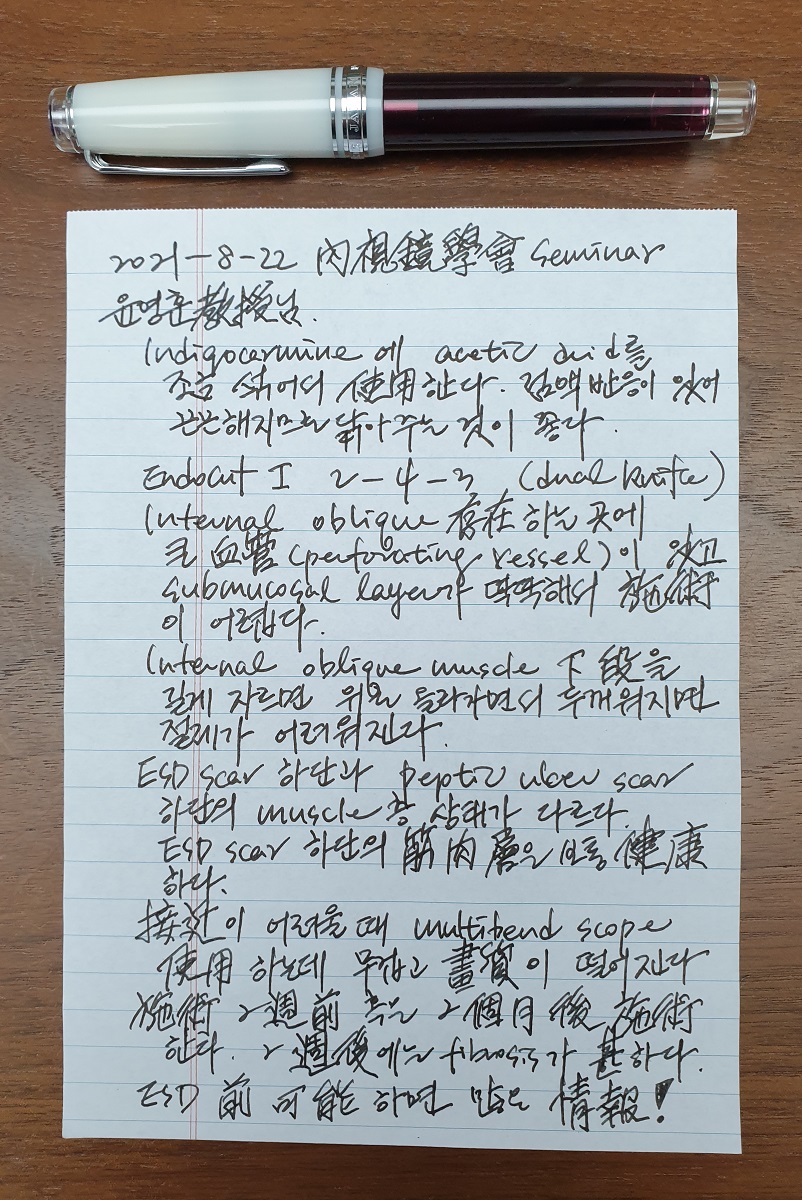 2021-8-22 內視鏡學會 seminar
윤영훈敎授님.
Indigocarmine 에 acetic acid를
조금 섞어서 使用한다. 점액 반응이 있어
끈끈해지므로 닦아 주는 것이 좋다.
Endocut I 2-4-3 (dual knife)
Internal oblique 存在 하는 곳에
큰 血管 (perforating vessel)이 있고
submucosal layer가 딱딱해서 施術
이 어렵다.
Internal oblique muscle 下段을
길게 자르면 위로 올라가면서 두꺼워지면
절제가 어려워진다.
ESD scar 하단과 peptic ulcer scar
하단의 muscle 층 상태가 다르다.
ESD scar 하단의 筋肉層은 보통 健康
하다.
接近이 어려울 때 multibend scope
使用 하는데 무겁고 畫質이 떨어진다
施術 2週前 혹은 2個月 後 施術
한다. 2週後에는 fibrosis가 甚하다.
ESD 前 可能하면 많은 情報!